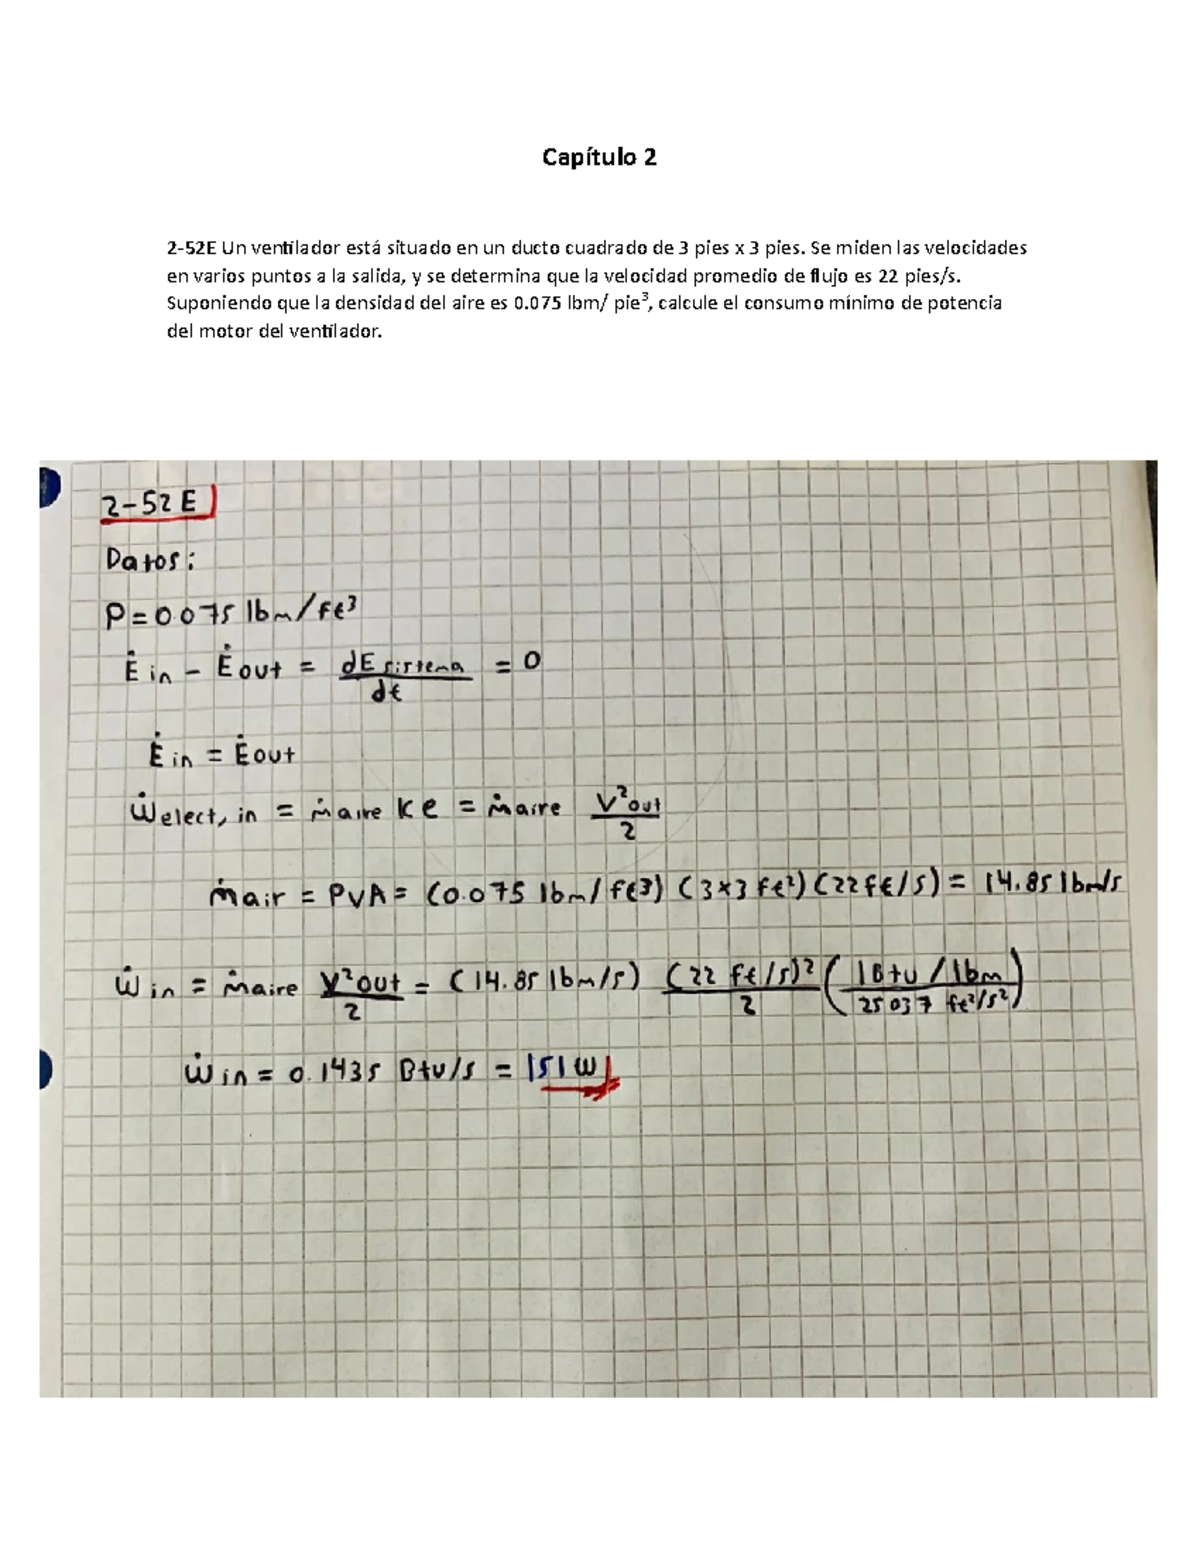 Capítulo 2
2-52E Un ventilador está situado en un ducto cuadrado de 3 pies x 3 pies. Se miden las velocidades
en varios puntos a la salida, y se determina que la velocidad promedio de flujo es 22 pies/s.
Suponiendo que la densidad del aire es 0.075 lbm/ pie³, calcule el consumo mínimo de potencia
del motor del ventilador.
2-52 E
Datos:
P = 0.075 lbm/ft³
Ė in - Ė out = dE sistema / dt = 0
Ė in = Ė out
Ẇelect, in = ṁaire ke = ṁaire V²out / 2
ṁair = PVA = (0.075 lbm/ft3) (3x3 ft²) (22 ft/s) = 14.85 lbm/s
Ẇ in = ṁaire V²out / 2 = (14.85 lbm/s) (22 ft/s)² / 2 (1Btu/lbm / 25037 ft²/s²)
Ẇ in = 0.1435 Btu/s = 151 W